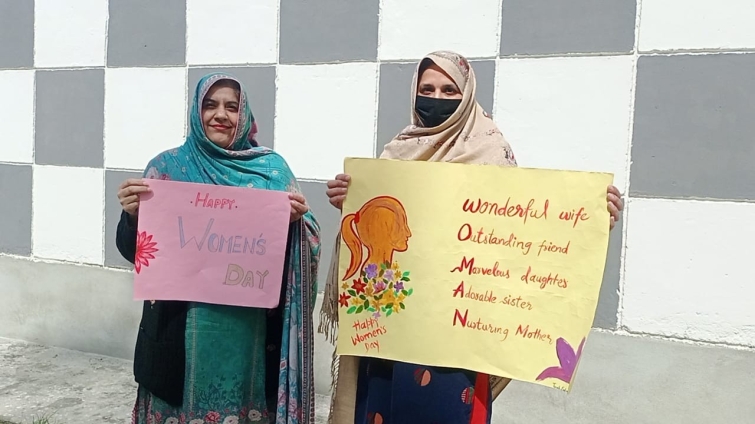 ·Happy·
WOMEN'S
DAY
Wonderful wife
Outstanding friend
Marvelous daughter
Adorable sister
Nurturing Mother
Happy
Women's
Day